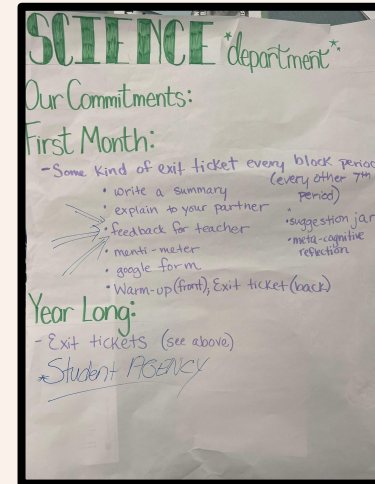 SCIENCE *department*
Our Commitments:
First Month:
- Some kind of exit ticket every block period
(every other 7th period)
• write a summary
• explain to your partner
• feedback for teacher
• menti-meter
• google form
• Warm-up (front), Exit ticket (back)
• suggestion jar
• meta-cognitive reflection
Year Long:
- Exit tickets (see above)
* Student AGENCY